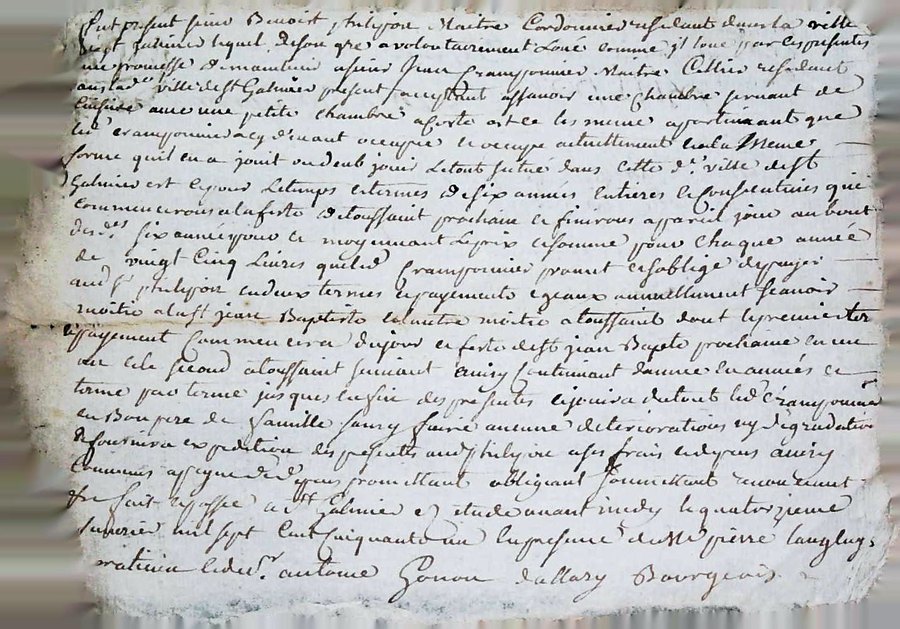 fut present sieur Benoist philipon Maitre Cordonnier residant dans la ville
de st galmier lequel de son gré a volontairement Loué comme jl loue par ces presentes
une promesse de maintenir a sieur Jean Cramponnier Maitre Cellier residant
dans lad.e ville de st Galmier present acceptant assavoir une chambre servant de
Cuisine avec une petite chambre a Coste et le les meme apartenant que
led.t cramponnier a cy devant occupée et occupe actuellement et de la Meme
forme quil en a jouit ou deub jouir Le tout situé dans cette d.e ville de st
Galmier et ce pour Le temps et termes de six années entieres et consecutives qui
commenceront a la feste de toussaint prochaine et finiront a pareil jour au bout
desd.es six années pour et moyennant Le prix et somme pour chaque année
de vingt Cinq Livres que led.t Cramponnier promet et soblige de payer
aud.t sr philipon en deux termes et payements egeaux annuellement scavoir
moitié a la st jean Baptiste et lautre moitié a toussaint dont le premier ter
et payement Commencera du jour et feste de st jean Bapte prochaine en un
an et le second a toussaint suivant Ainsy continuant dannée en années et
terme par terme jusques en fin des presentes et jouira du tout led.t Cramponnier
en Bon pere de famille sans y faire aucune deteriorations ny degradation
et fournira expedition des presentes aud philipon a ses frais et depens ainsy
Convenus a peyne de d depens promettant obligeant soumettant renonceant
fre fait et passé a st Galmier et etude avant midy le quatorzieme
janvier mil sept Cent Cinquante un En presence de Mr pierre
praticien et de sr. antoine Gonon dallary Bourgeois